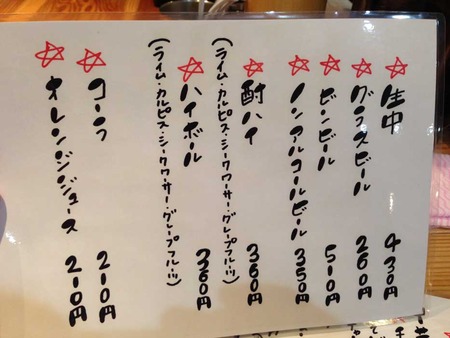 ☆生中 430円
☆グラスビール 260円
☆ビンビール 510円
☆ノンアルコールビール 350円
☆酎ハイ 360円
(ライム・カルピス・シークワーサー・グレープフルーツ)
☆ハイボール 360円
(ライム・カルピス・シークワーサー・グレープフルーツ)
☆コーラ 210円
☆オレンジジュース 210円